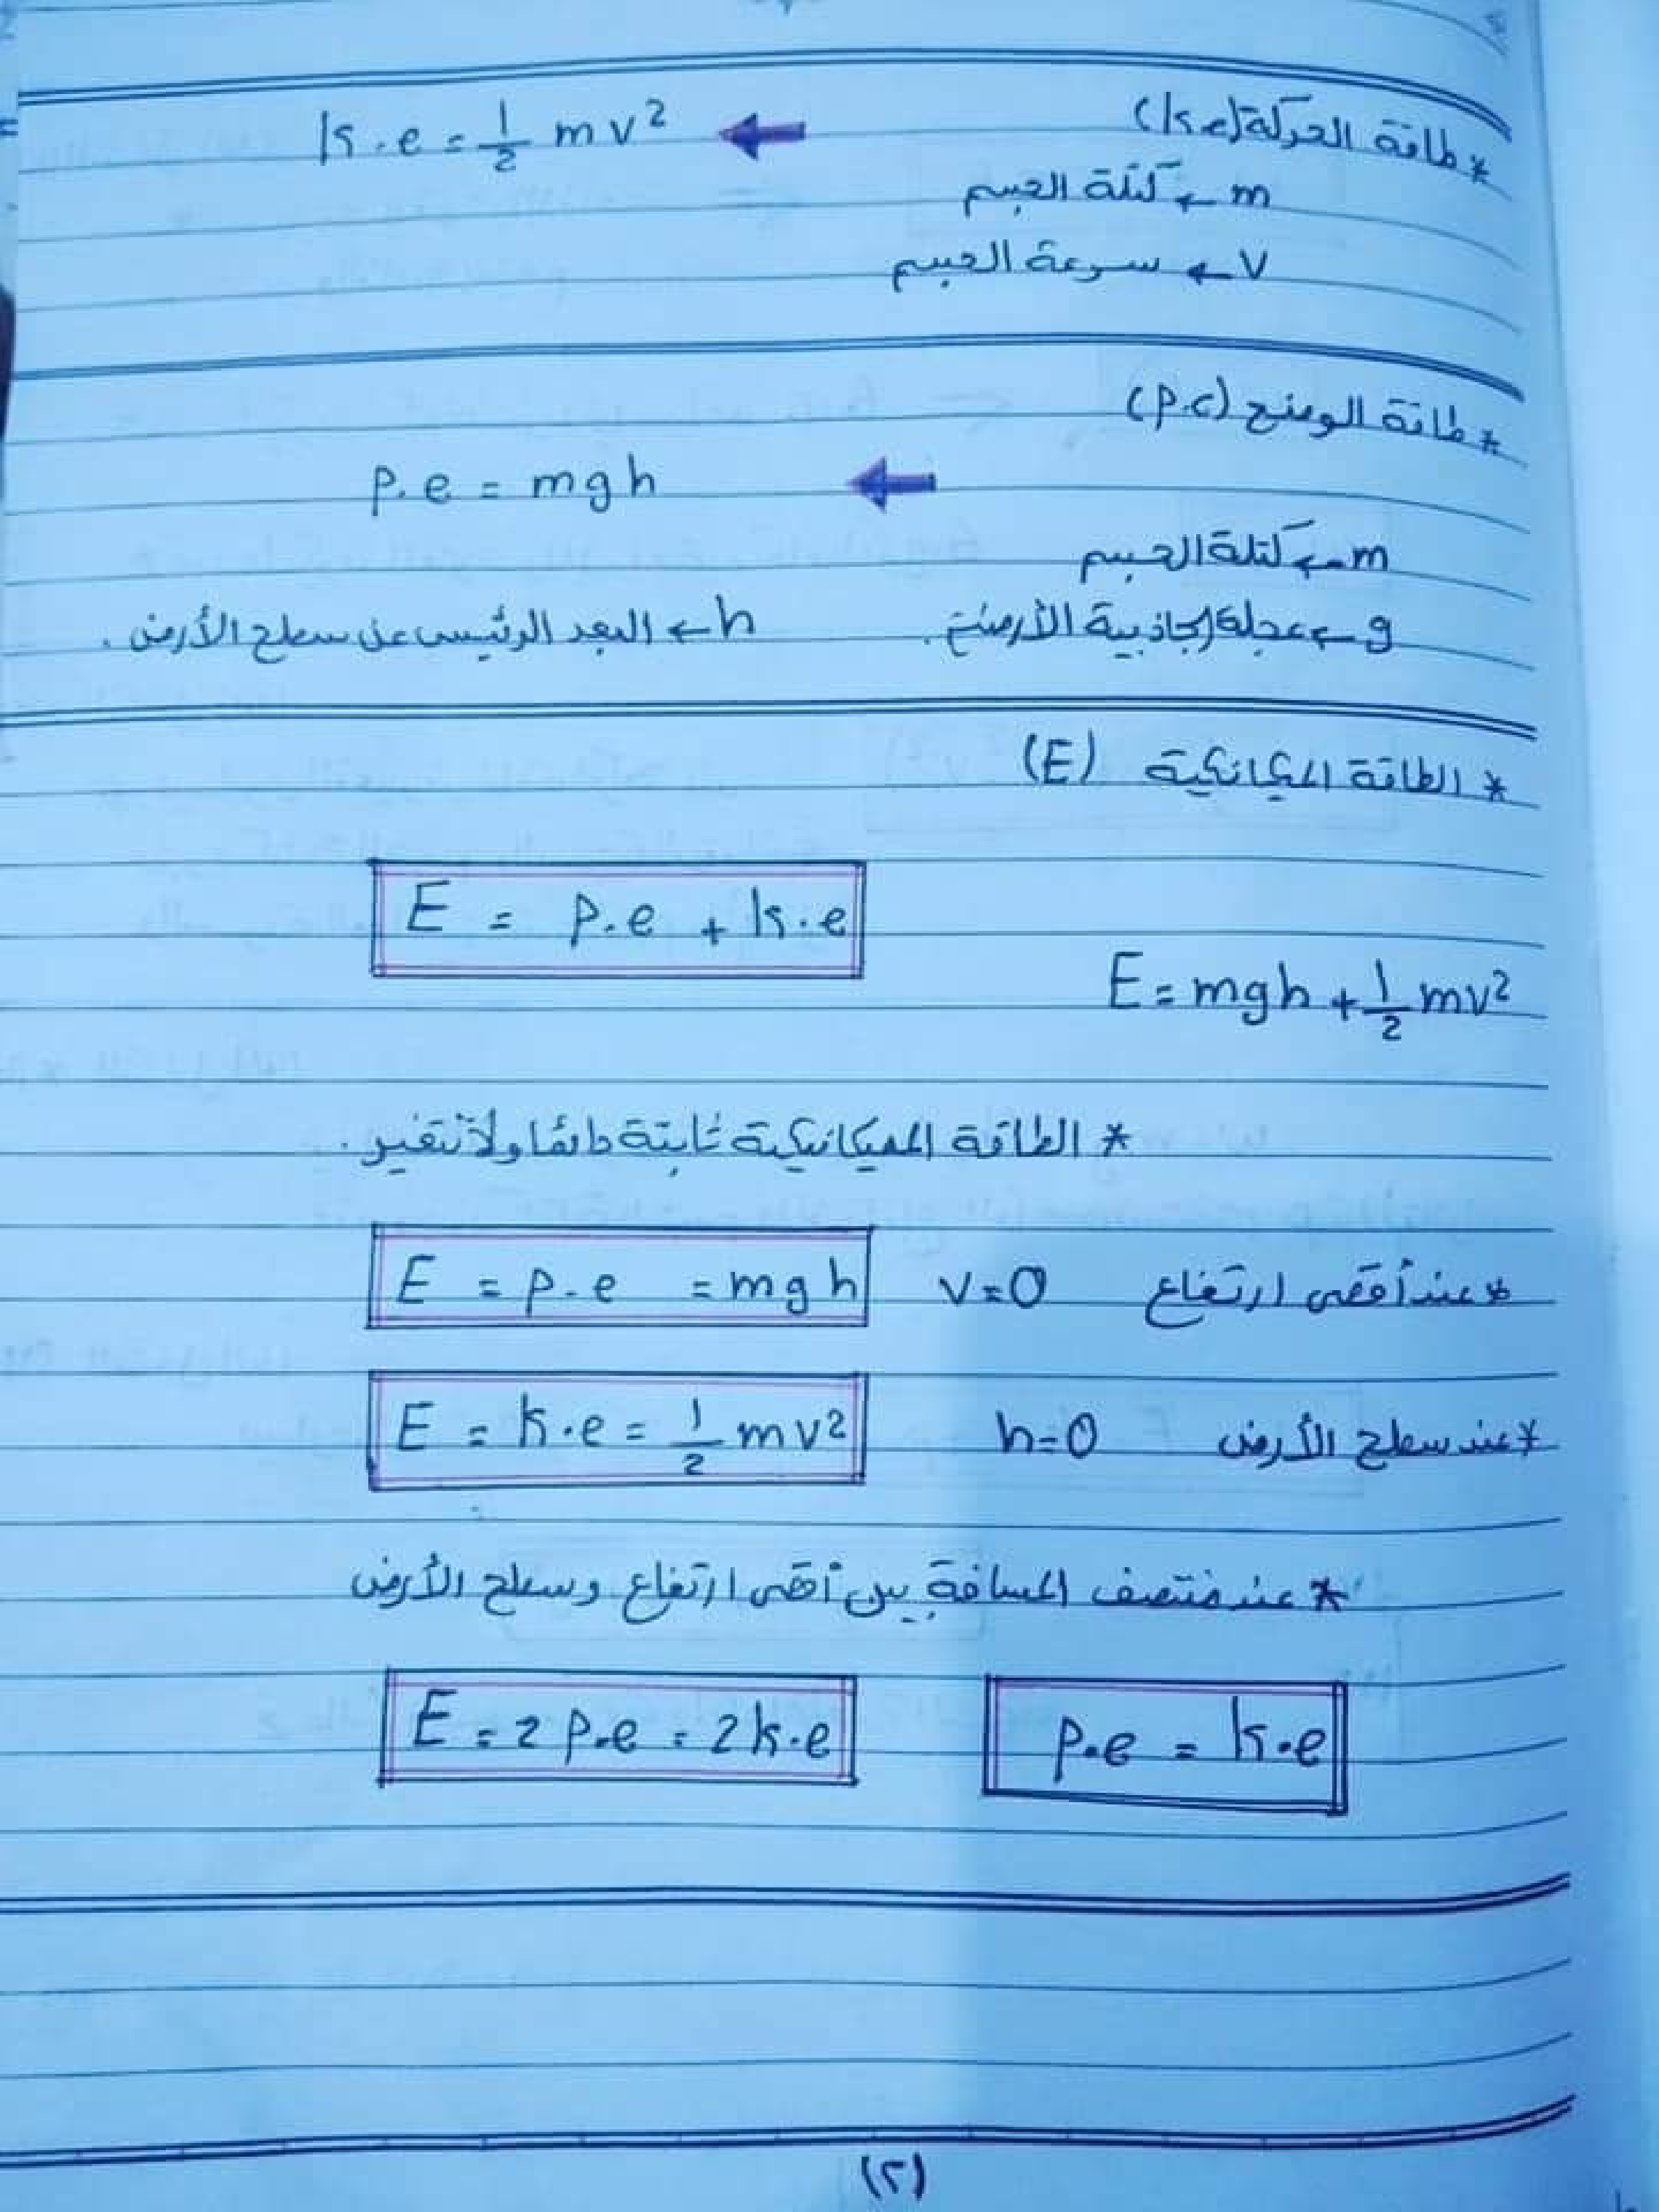 * طاقة الحركة (k.e) k.e = 1/2 mv²
m ← كتلة الجسم
v ← سرعة الجسم
* طاقة الوضع (p.e)
p.e = mgh
m ← كتلة الجسم
g ← عجلة الجاذبية الأرضية. h ← البعد الرئيسى عن سطح الأرض.
* الطاقة الميكانيكية (E)
E = p.e + k.e
E = mgh + 1/2 mv²
* الطاقة الميكانيكية ثابتة دائما ولا تتغير.
* عند أقصى ارتفاع v=0 E = p.e = mgh
* عند سطح الأرض h=0 E = k.e = 1/2 mv²
* عند منتصف المسافة بين أقصى ارتفاع وسطح الأرض
p.e = k.e E = 2p.e = 2k.e
(٢)